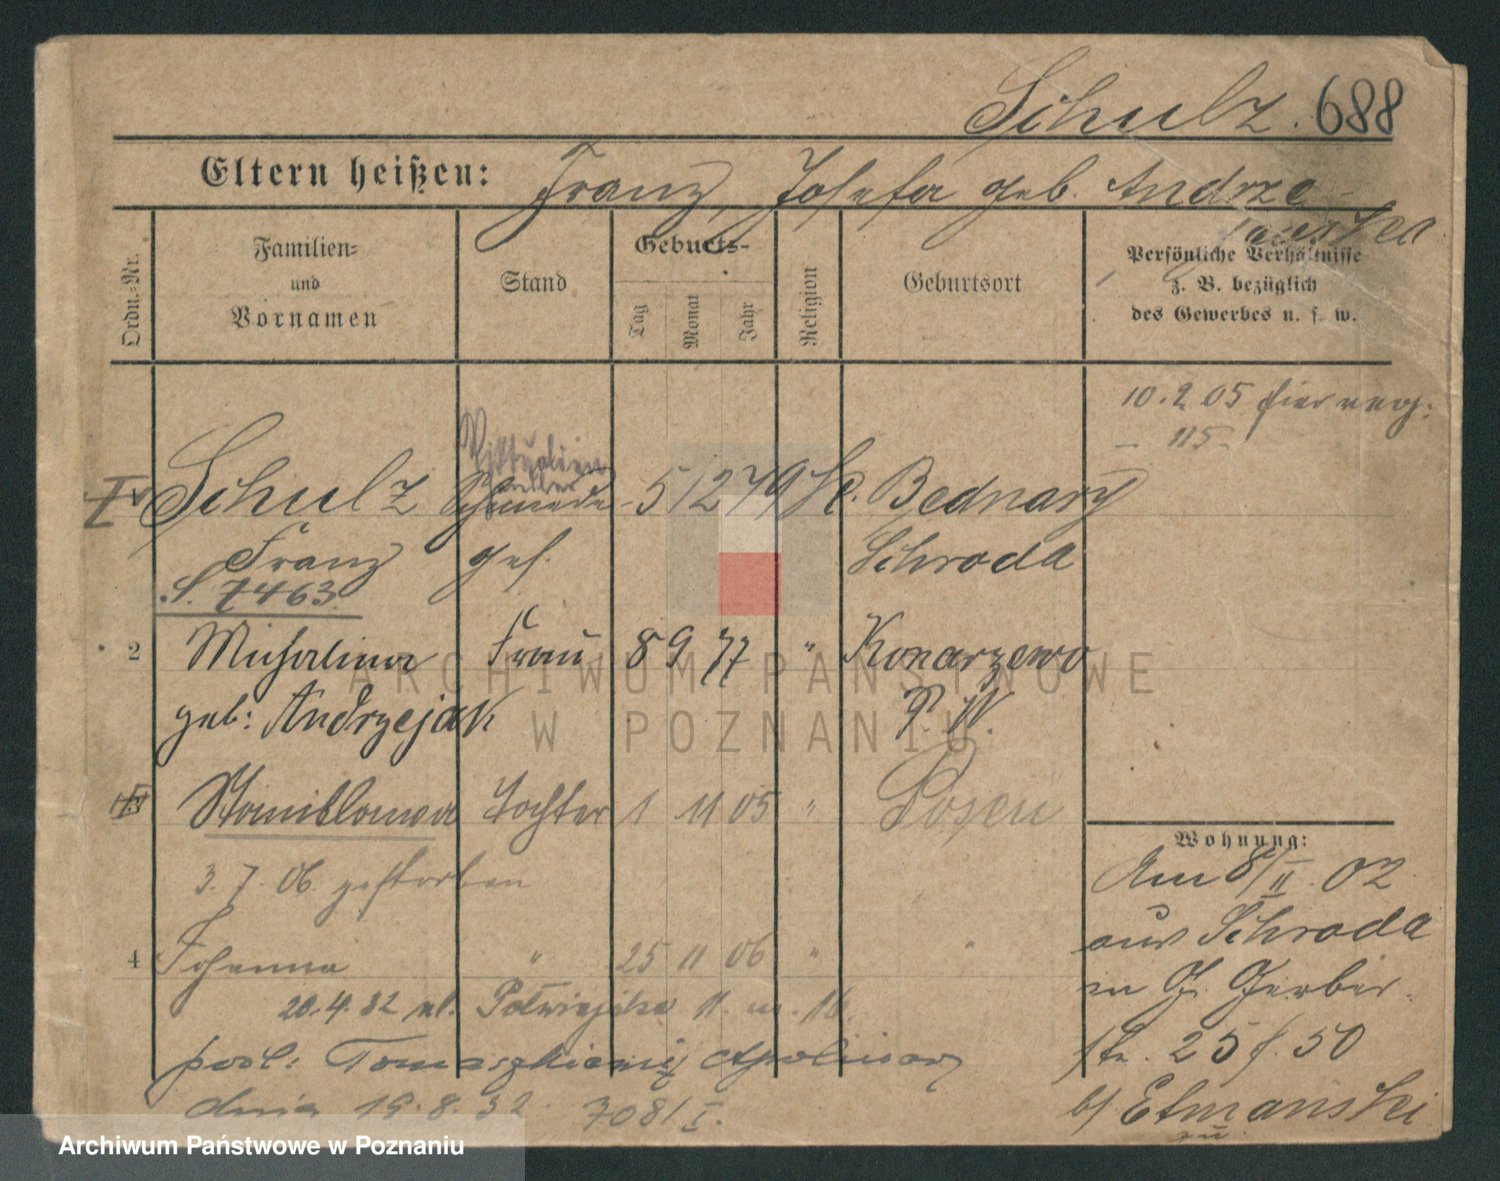 Schulz. 688
Eltern heißen: Franz, Josefa geb. Andrze-
jewska
Ordn.-Nr.
Familien-
und
Vornamen
Stand
Geburts-
Tag
Monat
Jahr
Religion
Geburtsort
Persönliche Verhältnisse
z. B. bezüglich
des Gewerbes u. s. w.
10.2.05 hier
- 115 -
Schulz Schmiede- 5 12 79 Bednary
Franz ges. Schroda
S. 7463.
2 Michalina Frau 8 9 77 " Konarzewo
geb: Andrzejak P. W.
Stanislawa Tochter 1 11 05 " Posen
3.7.06. gestorben
4 Johanna " 25 11 06 " "
20.4.32 ul. Półwiejska 11. m. 16.
posl: Tomaszkiewicz Apolinary
dnia 19.8.32. 7081/I.
Wohnung:
Am 8/II. 02
aus Schroda
in G. Gerber-
str. 25 f. 50
b/ Etmański
ARCHIWUM PAŃSTWOWE
W POZNANIU
Archiwum Państwowe w Poznaniu